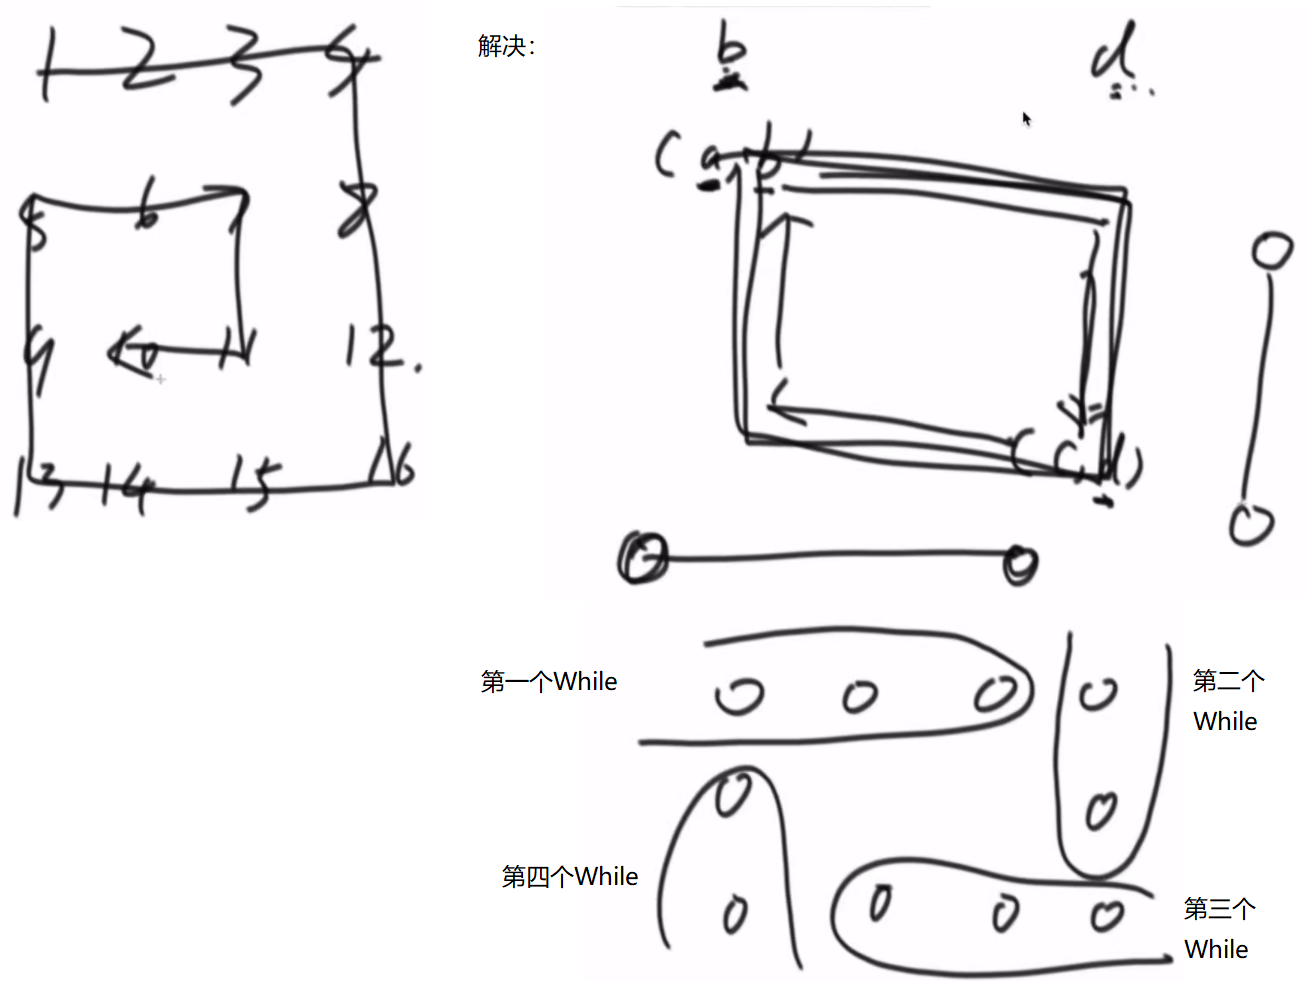 1 2 3 4
5 6 7 8
9 10 11 12.
13 14 15 16
解决：
b
d
(a b)
(c d)
第一个While
第二个
While
第四个While
第三个
While